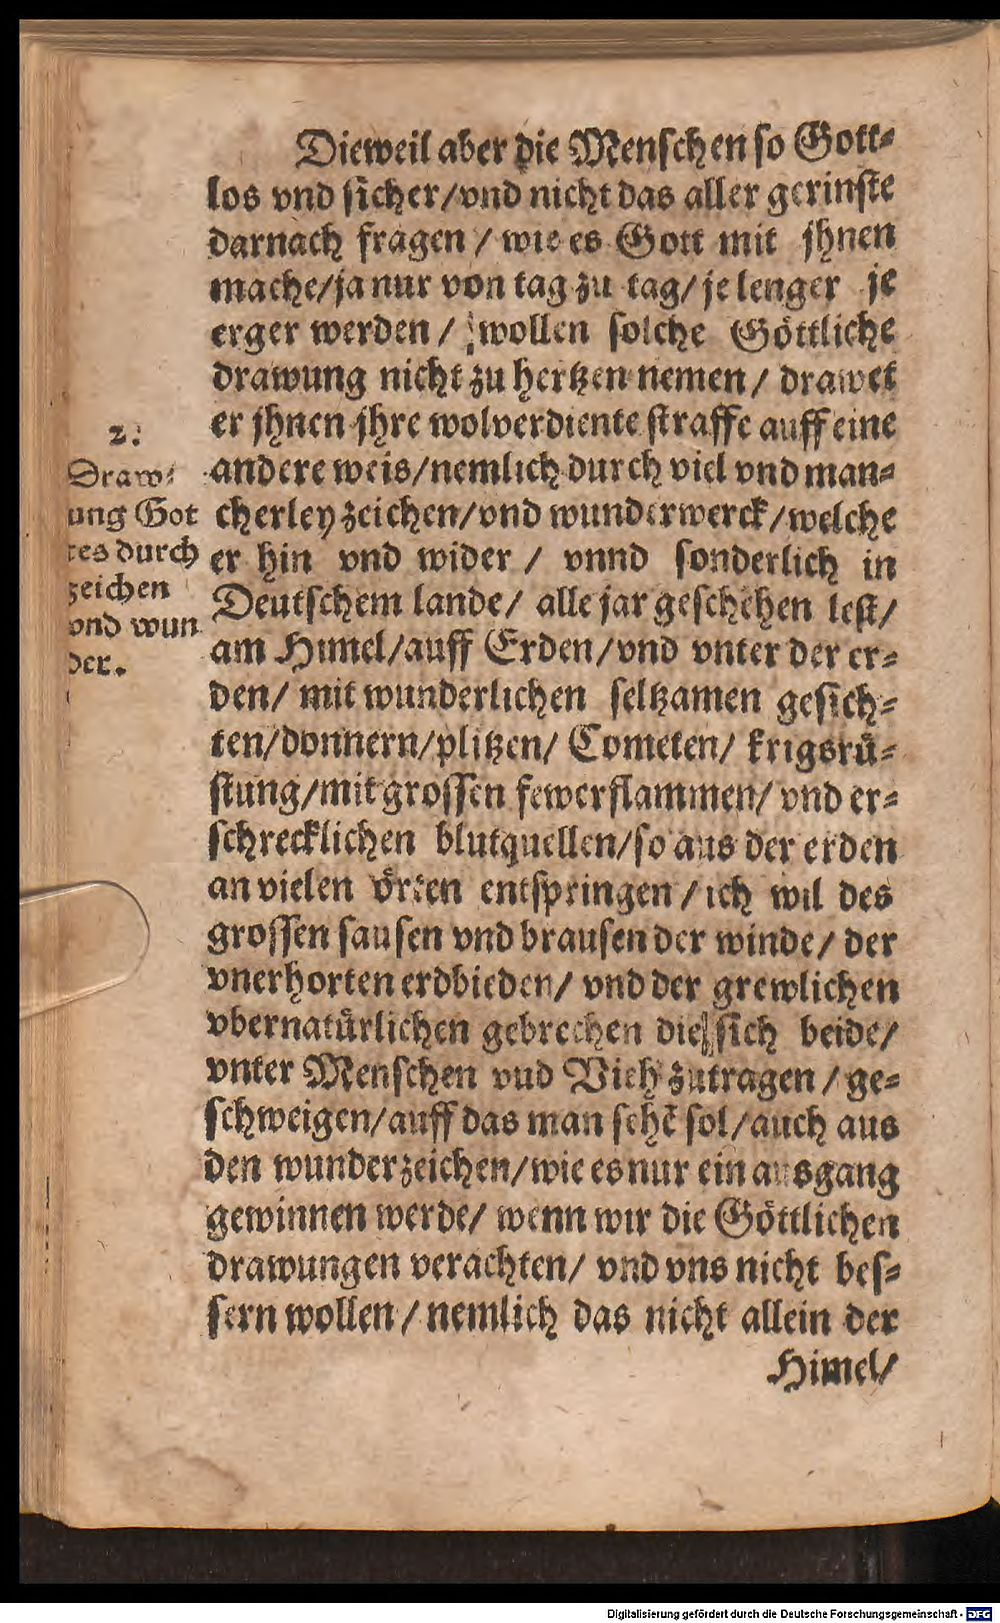 Dieweil aber die Menschen so Gott-
los vnd sicher/vnd nicht das aller gerinste
darnach fragen / wie es Gott mit jhnen
mache/ja nur von tag zu tag/ je lenger je
erger werden / wollen solche Göttliche
drawung nicht zu hertzen nemen / drawet
er jhnen jhre wolverdiente straffe auff eine
andere weis/nemlich durch viel vnd man-
cherley zeichen/vnd wunderwerck/welche
er hin vnd wider / vnnd sonderlich in
Deutschem lande/ alle jar geschehen lest/
am Himel/auff Erden/vnd vnter der er-
den/ mit wunderlichen seltzamen gesich-
ten/donnern/plitzen/ Cometen/ krigsrü-
stung/mit grossen fewerflammen/ vnd er-
schrecklichen blutquellen/so aus der erden
an vielen örten entspringen / ich wil des
grossen sausen vnd brausen der winde/ der
vnerhorten erdbieden/ vnd der grewlichen
vbernatürlichen gebrechen die sich beide/
vnter Menschen vud Vieh zutragen / ge-
schweigen/auff das man sehē sol/auch aus
den wunderzeichen/wie es nur ein ausgang
gewinnen werde/ wenn wir die Göttlichen
drawungen verachten/ vnd vns nicht bes-
sern wollen / nemlich das nicht allein der
Himel/
2.
Draw-
ung Got
tes durch
zeichen
vnd wun
der.
Digitalisierung gefördert durch die Deutsche Forschungsgemeinschaft - DFG